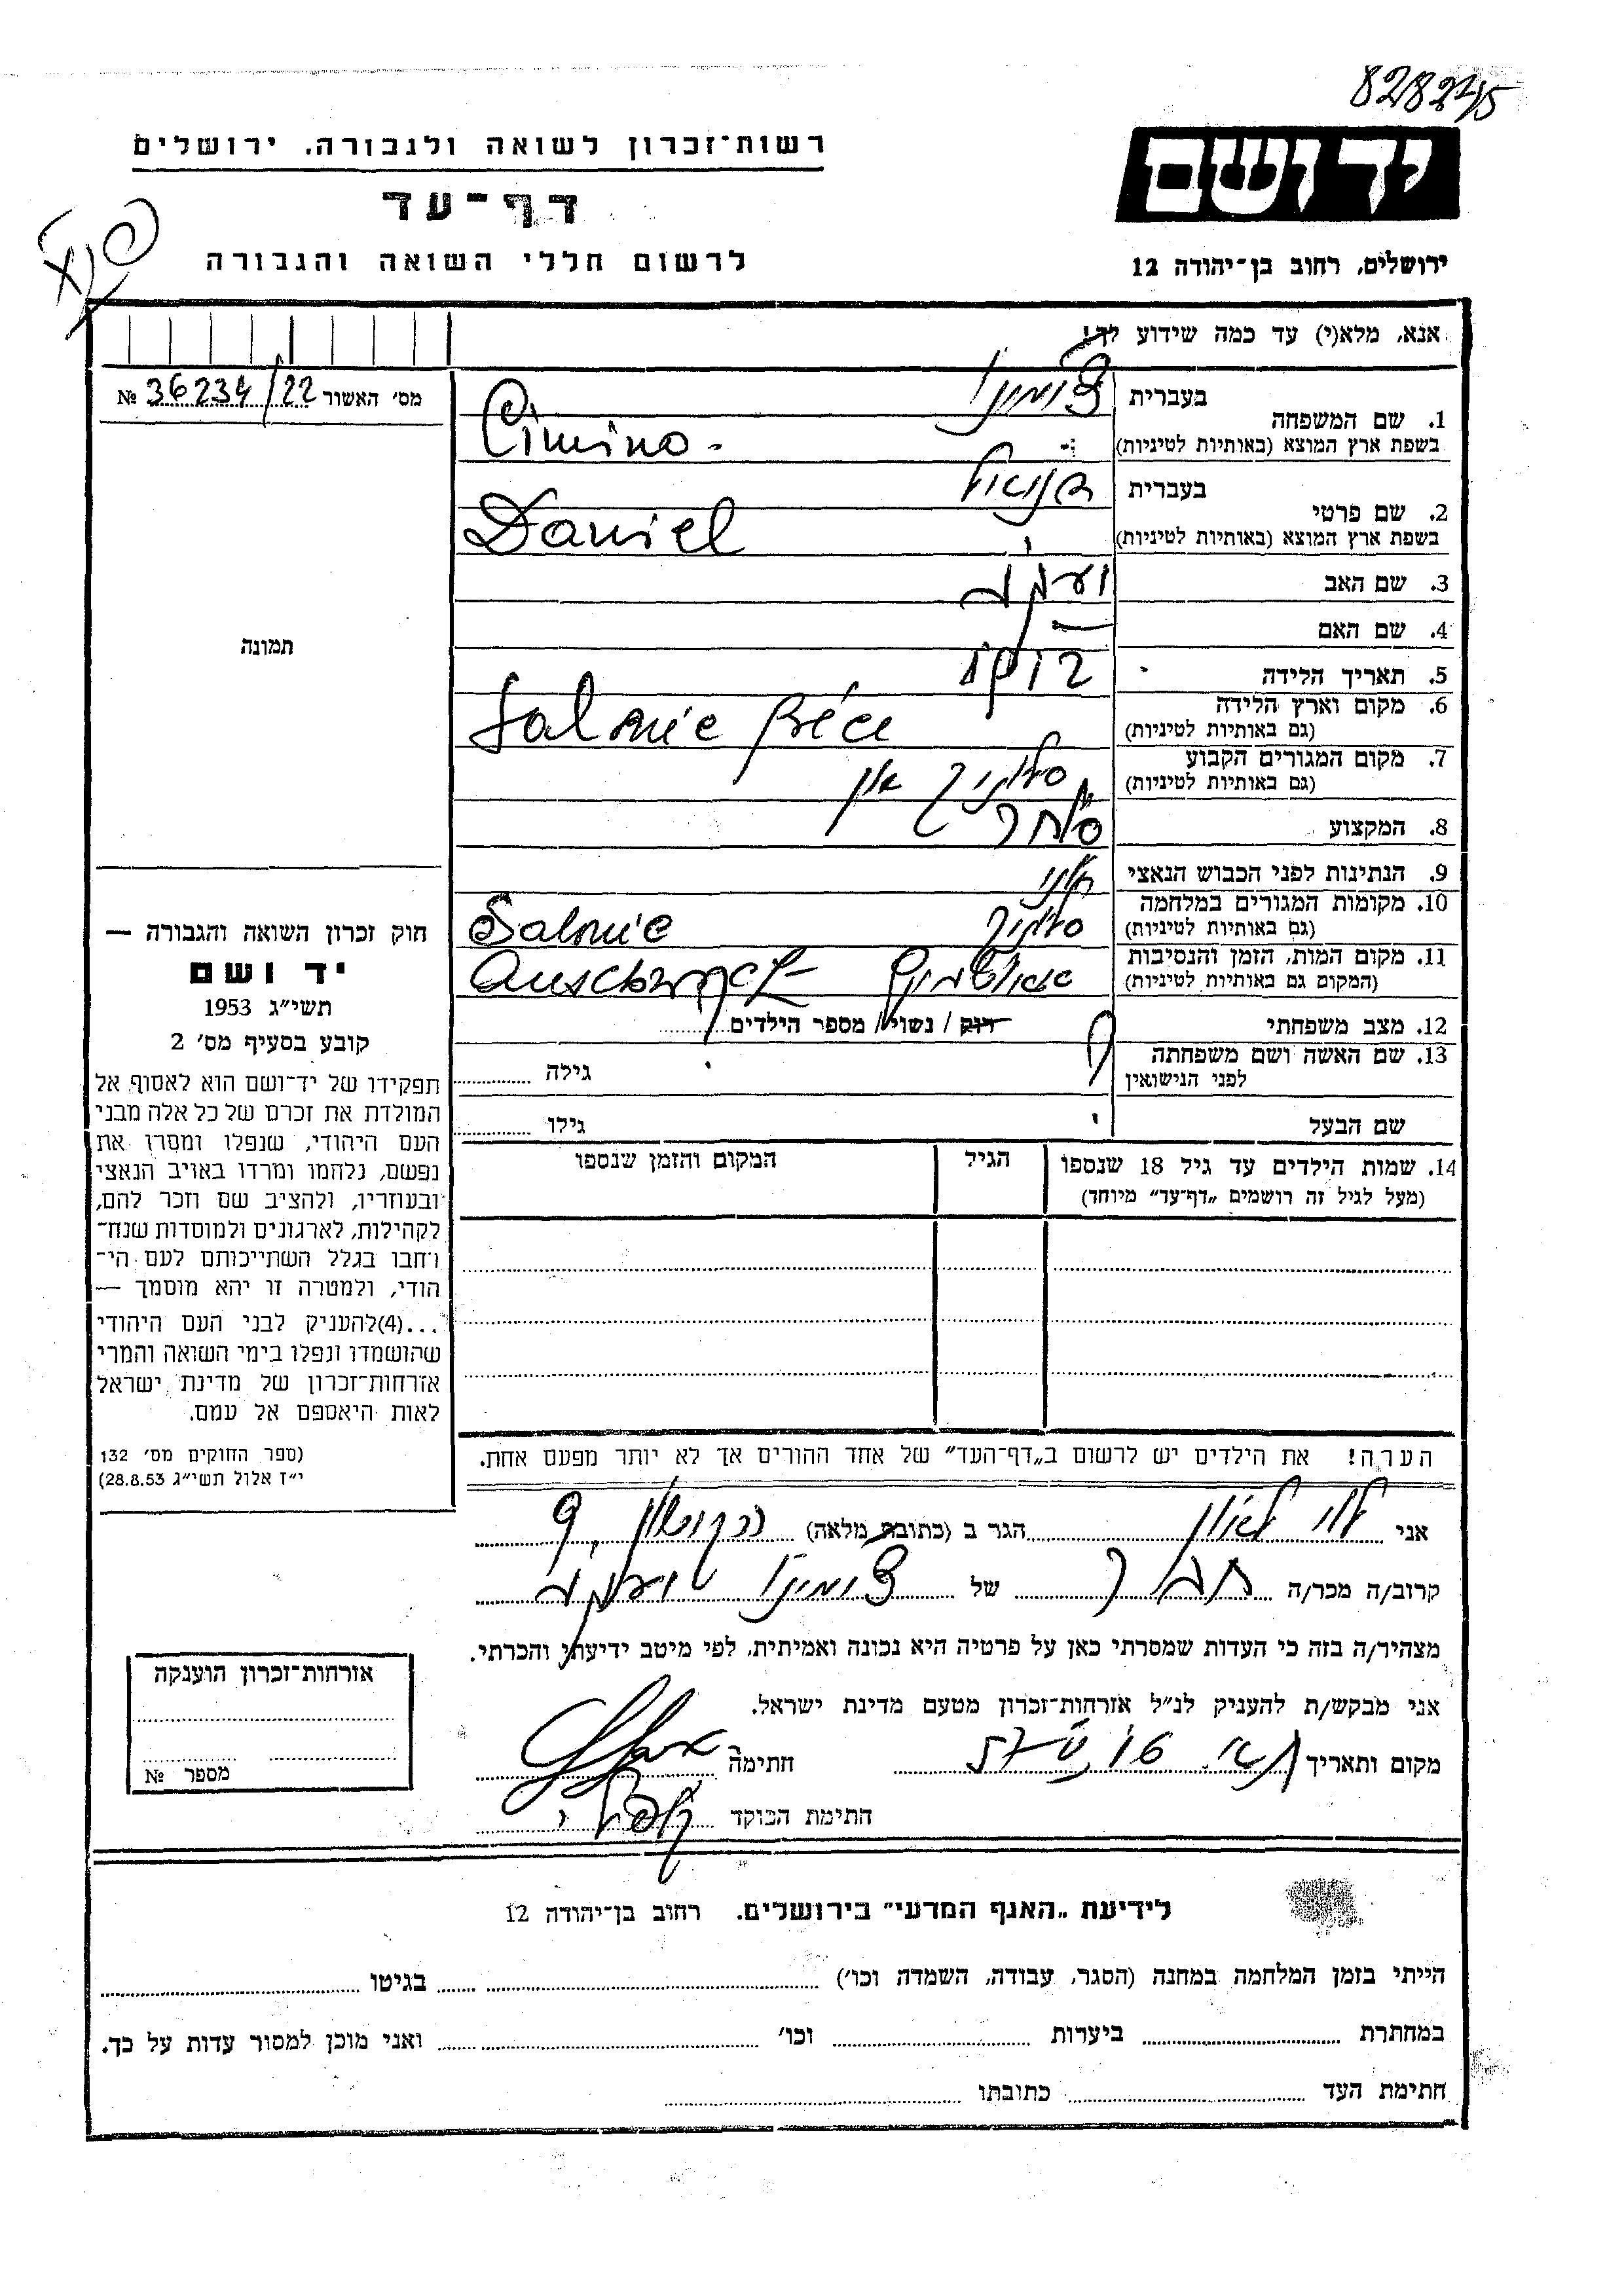 רשות־זכרון לשואה ולגבורה. ירושלים
דף־עד
לרשום חללי השואה והגבורה
יד ושם
ירושלים, רחוב בן־יהודה 12
אנא, מלא(י) עד כמה שידוע לך!
מס׳ האשור № 36234/22
תמונה
1. שם המשפחה
בעברית
בשפת ארץ המוצא (באותיות לטיניות)
Cimino
2. שם פרטי
בעברית דניאל
בשפת ארץ המוצא (באותיות לטיניות)
Daniel
3. שם האב יעקב
4. שם האם —
5. תאריך הלידה
6. מקום וארץ הלידה
(גם באותיות לטיניות)
7. מקום המגורים הקבוע
(גם באותיות לטיניות)
סלוניק
8. המקצוע סוחר
9. הנתינות לפני הכבוש הנאצי
10. מקומות המגורים במלחמה
(גם באותיות לטיניות)
סלוניק
11. מקום המות, הזמן והנסיבות
(המקום גם באותיות לטיניות)
12. מצב משפחתי
רוק / נשוי / מספר הילדים
13. שם האשה ושם משפחתה
לפני הנישואין
גילה
שם הבעל
גילו
14. שמות הילדים עד גיל 18 שנספו
(מעל לגיל זה רושמים „דף־עד” מיוחד)
הגיל
המקום והזמן שנספו
הערה! את הילדים יש לרשום ב„דף־העד” של אחד ההורים אך לא יותר מפעם אחת.
חוק זכרון השואה והגבורה —
יד ושם
תשי״ג 1953
קובע בסעיף מס׳ 2
תפקידו של יד־ושם הוא לאסוף אל
המולדת את זכרם של כל אלה מבני
העם היהודי, שנפלו ומסרו את
נפשם, נלחמו ומרדו באויב הנאצי
ובעוזריו, ולהציב שם וזכר להם,
לקהילות, לארגונים ולמוסדות שנח־
רחבו בגלל השתייכותם לעם הי־
הודי, ולמטרה זו יהא מוסמך —
...(4)להעניק לבני העם היהודי
שהושמדו ונפלו בימי השואה והמרי
אזרחות־זכרון של מדינת ישראל
לאות היאספם אל עמם.
(ספר החוקים מס׳ 132
י״ז אלול תשי״ג 28.8.53)
אני לוי הגר ב (כתובת מלאה)
קרוב/ה מכר/ה חבר של צימינו יעקב
מצהיר/ה בזה כי העדות שמסרתי כאן על פרטיה היא נכונה ואמיתית, לפי מיטב ידיעתי והכרתי.
אני מבקש/ת להעניק לנ״ל אזרחות־זכרון מטעם מדינת ישראל.
מקום ותאריך
חתימה
חתימת הפוקד
אזרחות־זכרון הוענקה
מספר №
לידיעת „האגף המדעי” בירושלים. רחוב בן־יהודה 12
הייתי בזמן המלחמה במחנה (הסגר, עבודה, השמדה וכו׳) בגיטו
במחתרת ביערות וכו׳ ואני מוכן למסור עדות על כך.
חתימת העד כתובתו